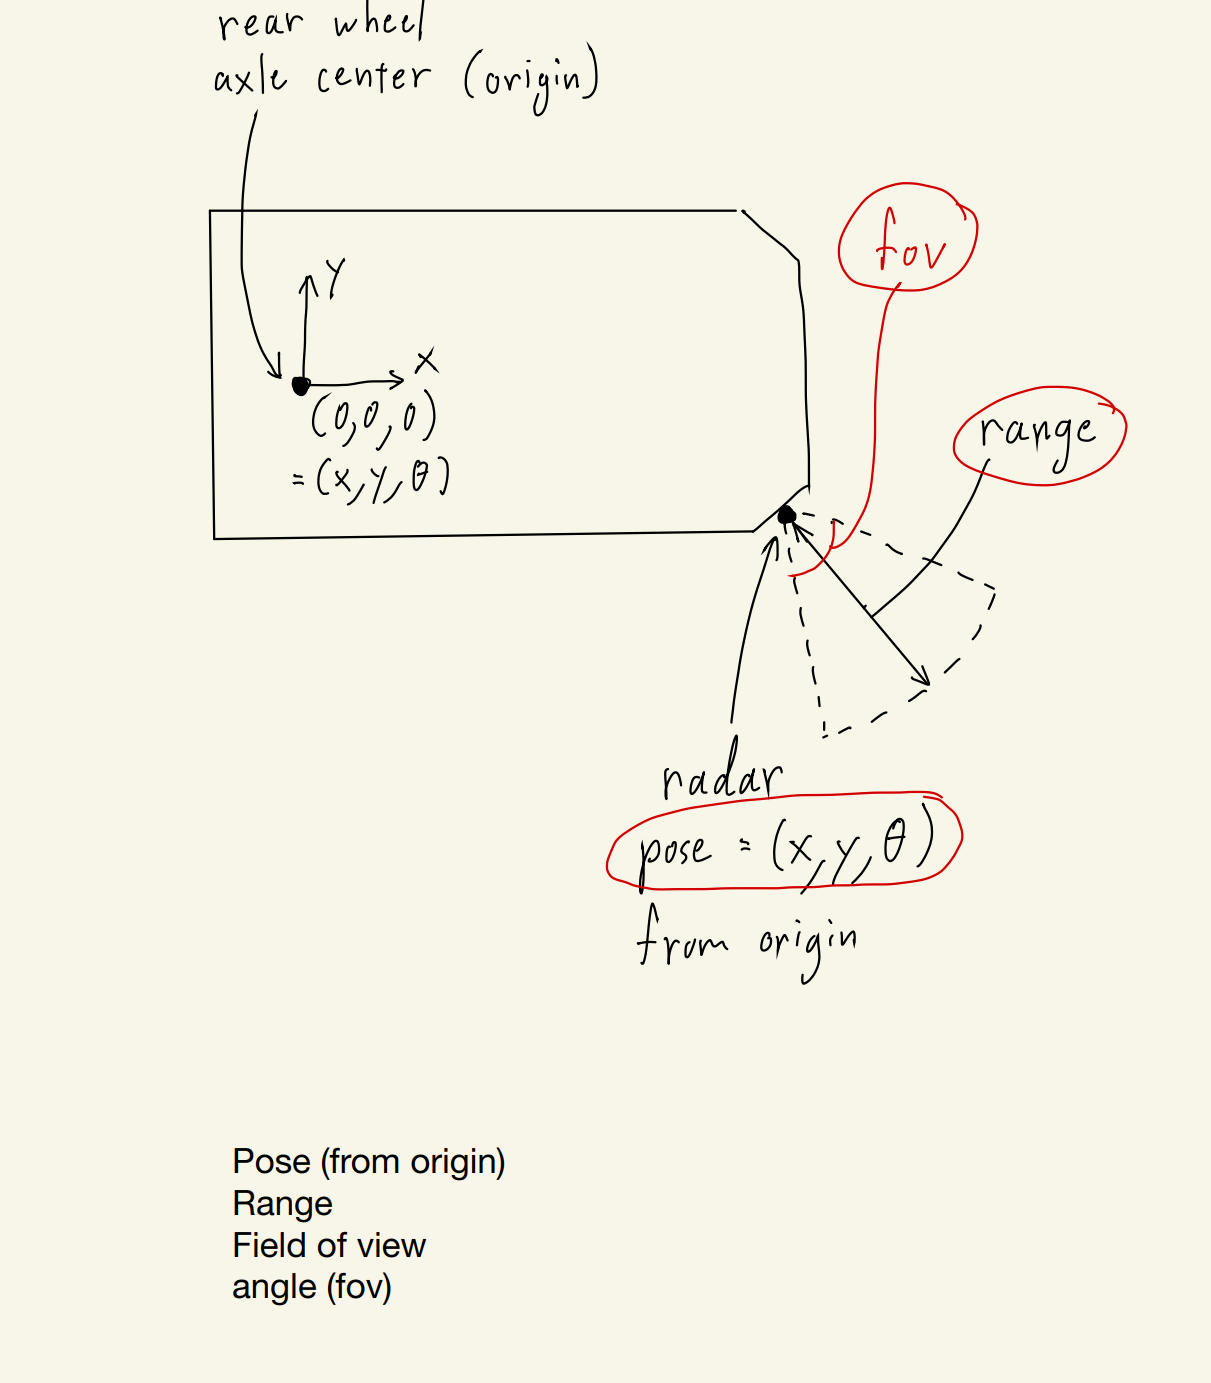 rear wheel
axle center (origin)
fov
Y
X
(0,0,0)
= (x,y,θ)
range
radar
pose = (x,y,θ)
from origin
Pose (from origin)
Range
Field of view
angle (fov)